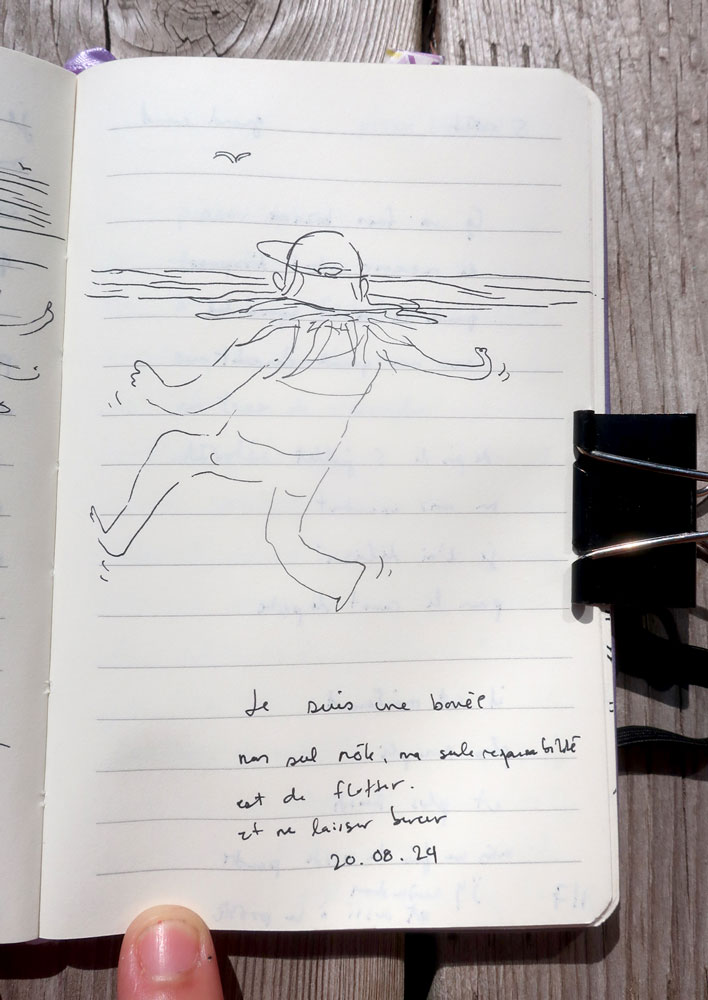 Je suis une bouée
mon seul rôle, ma seule responsabilité
est de flotter.
et me laisser bercer
20.08.24